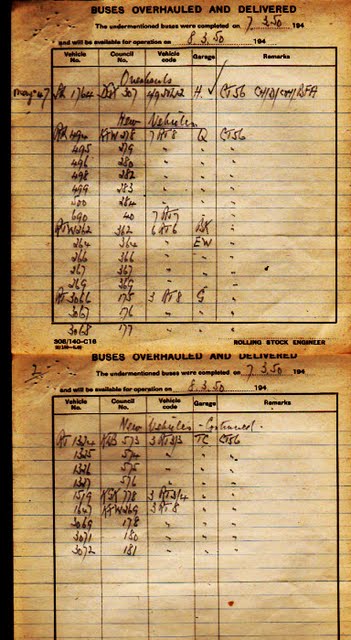 BUSES OVERHAULED AND DELIVERED
The undermentioned buses were completed on 7.3.50 194
and will be available for operation on 8.3.50 194
Vehicle No. Council No. Vehicle code Garage Remarks
Overhauls
1764 307 H ✓ CT56
New Vehicles
494 KXW 278 7 RT8 Q CT56
495 279 " " "
496 280 " " "
498 282 " " "
499 283 " " "
500 284 " " "
690 40 7 RT7 " "
RTW 262 362 6 RT6 "
264 364 " EW "
266 366 " " "
267 367 " " "
269 369 " " "
RT 3066 175 3 RT8 G "
3067 176 " " "
3068 177 " " "
306/140-C16 ROLLING STOCK ENGINEER
2
BUSES OVERHAULED AND DELIVERED
The undermentioned buses were completed on 7.3.50 194
and will be available for operation on 8.3.50 194
Vehicle No. Council No. Vehicle code Garage Remarks
New Vehicles - Continued.
RT 1324 573 3 RT3/3 TC CT56
1325 574 " " "
1326 575 " " "
1327 576 " " "
1519 778 3 RT3/4 " "
1647 KXW 269 3 RT8 " "
3069 178 " " "
3071 180 " " "
3072 181 " " "